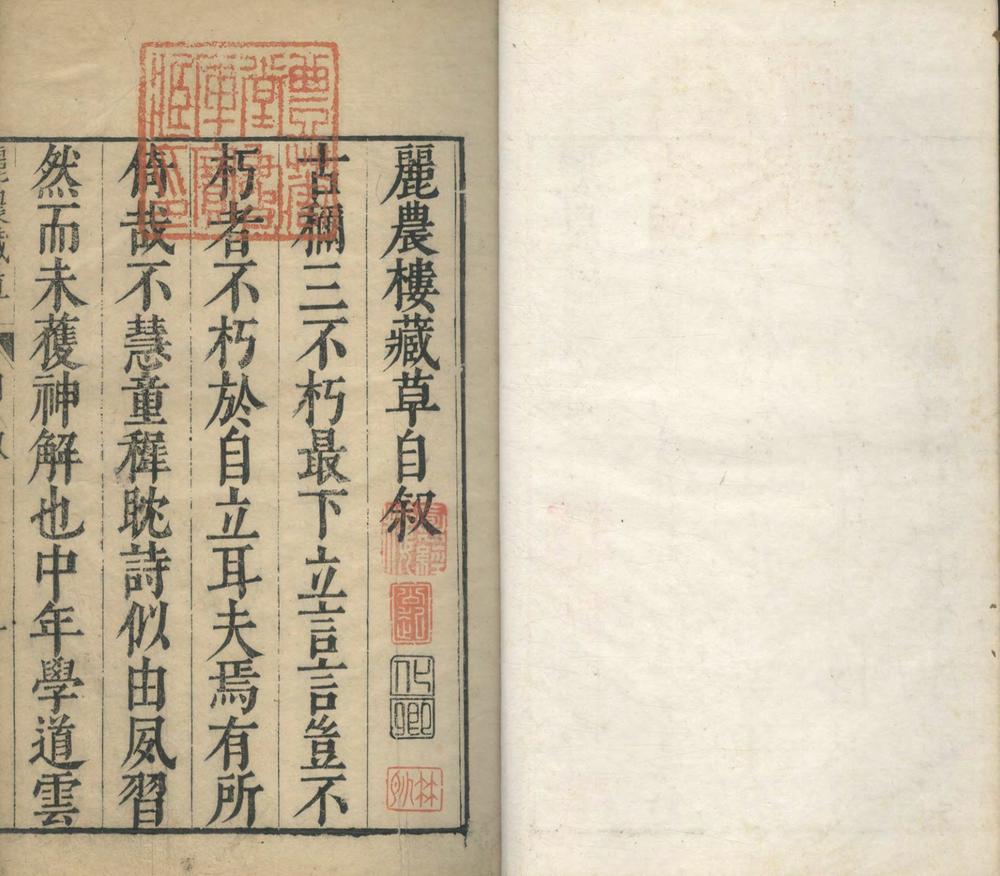 麗農樓藏草自叙
古稱三不朽最下立言言豈不
朽者不朽於自立耳夫焉有所
倚哉不慧童穉耽詩似由夙習
然而未䕶神解也中年學道雲